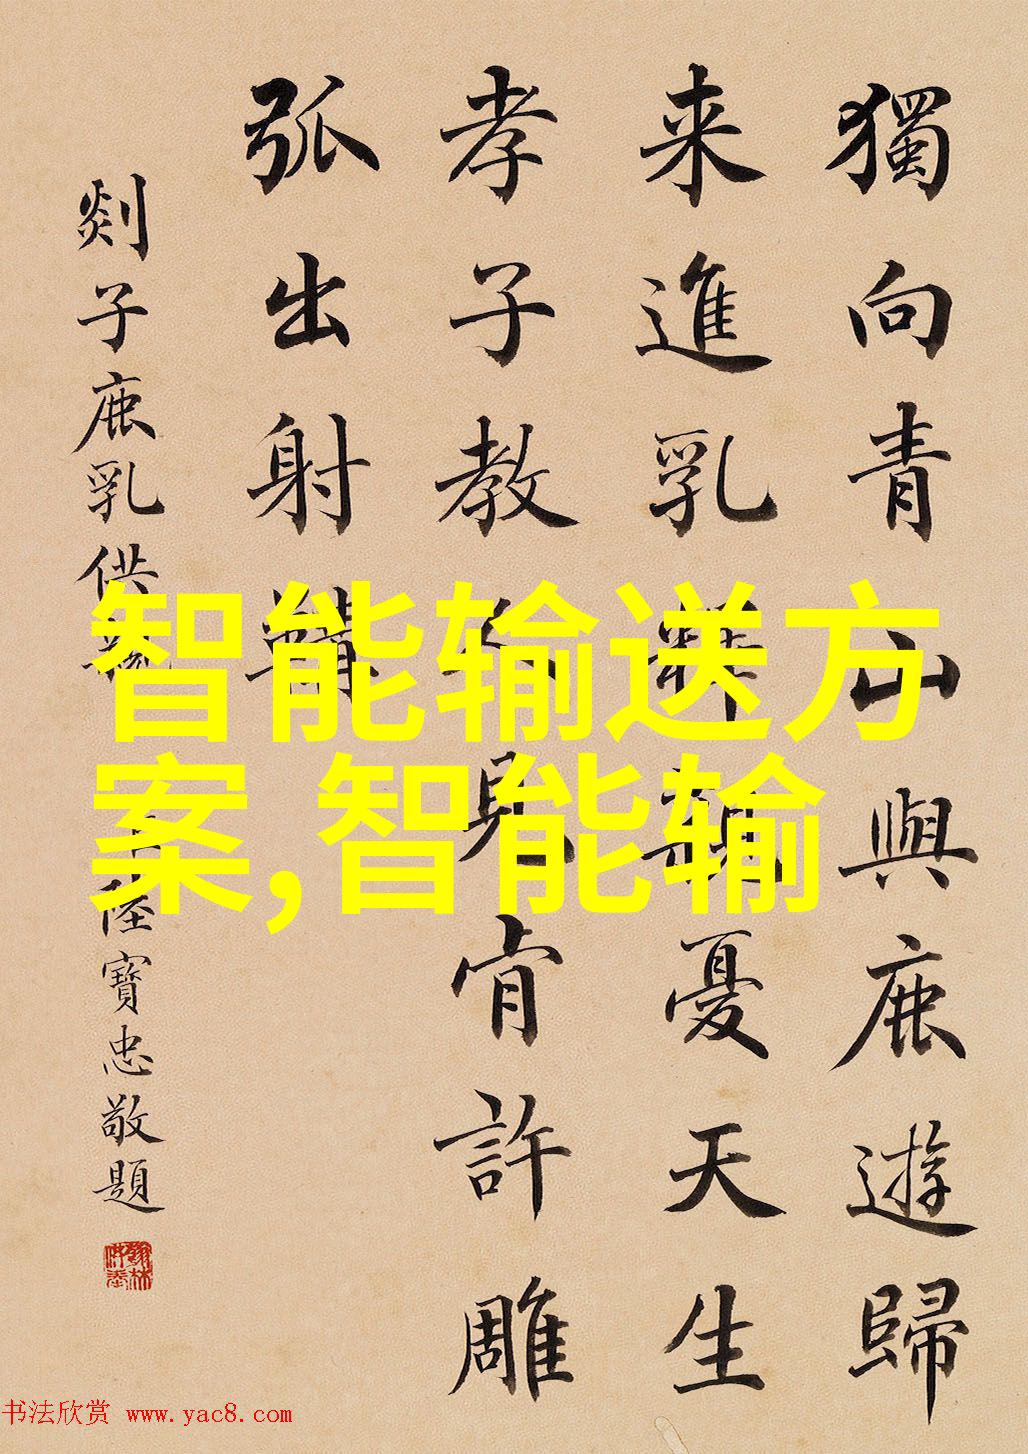 獨向青山與鹿遊歸
来進乳釋親憂天生
孝子教見肯許雕
弧出射鞲
剡子鹿乳供親
陸寶忠敬題
智能输送方
案,智能输
书法欣赏 www.yac8.com